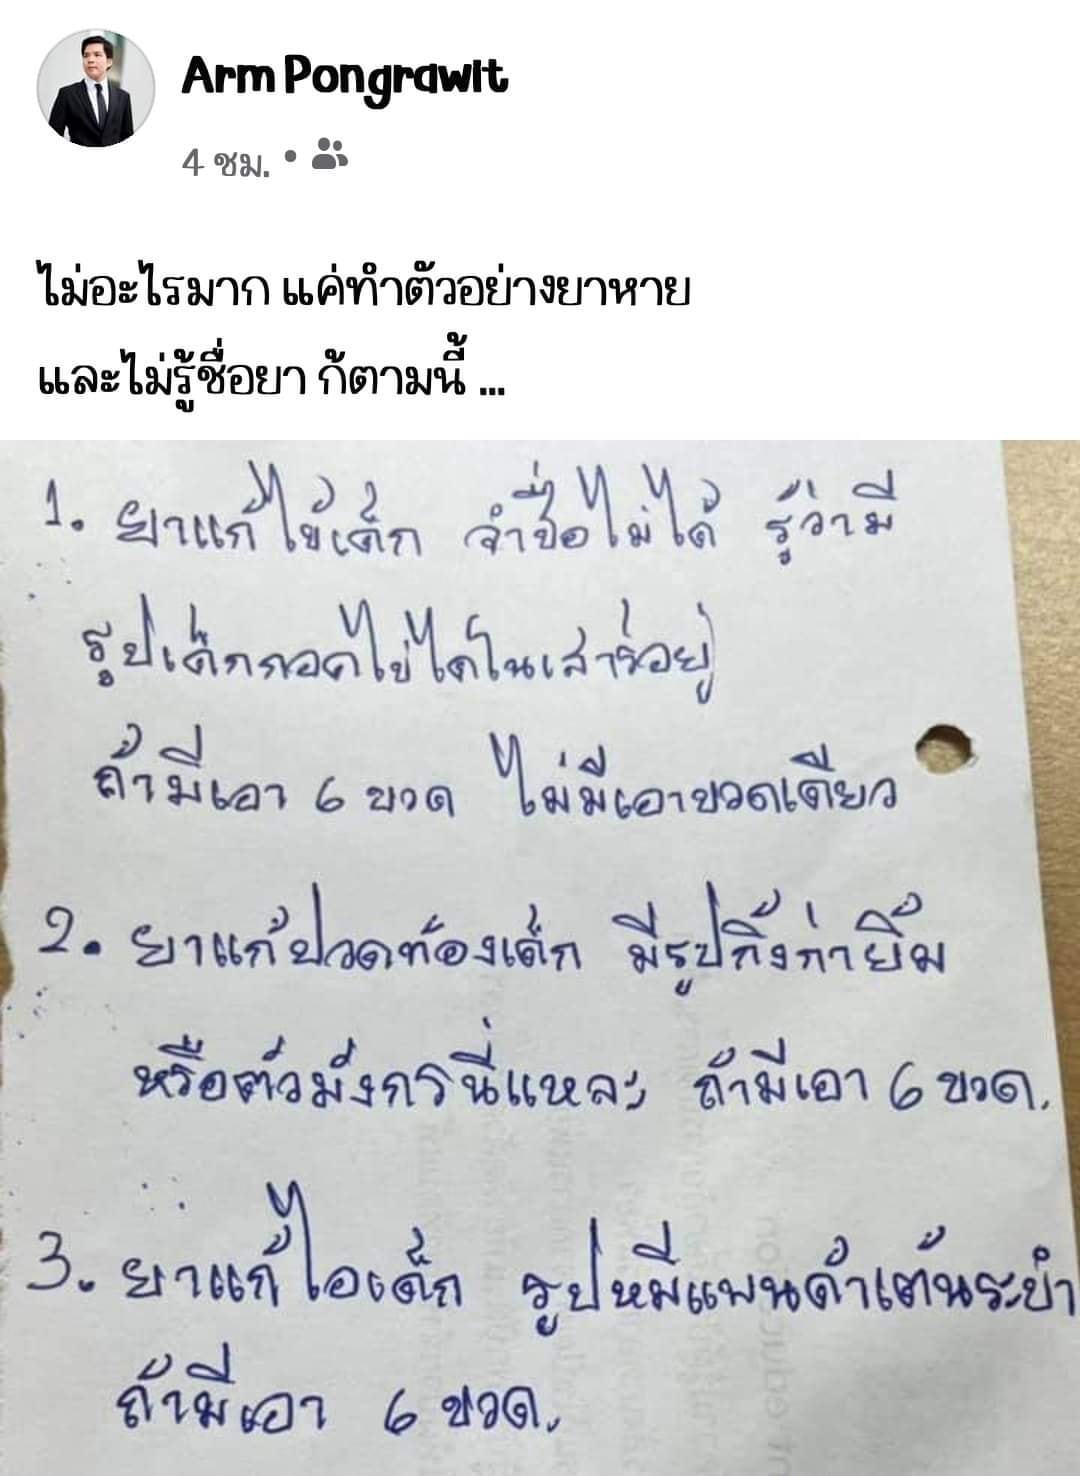 Arm Pongrawit
4 ชม.
ไม่อะไรมาก แค่ทำตัวอย่างยาหาย
และไม่รู้ชื่อยา ก้ตามนี้ ...
1. ยาแก้ไข้เด็ก จำชื่อไม่ได้ รู้ว่ามี
รูปเด็กกอดไข่ไดโนเสาร์อยู่
ถ้ามีเอา 6 ขวด ไม่มีเอาขวดเดียว
2. ยาแก้ปวดท้องเด็ก มีรูปกิ้งก่ายิ้ม
หรือตัวมังกรนี่แหละ ถ้ามีเอา 6 ขวด.
3. ยาแก้ไอเด็ก รูปหมีแพนด้าเต้นระบำ
ถ้ามีเอา 6 ขวด.